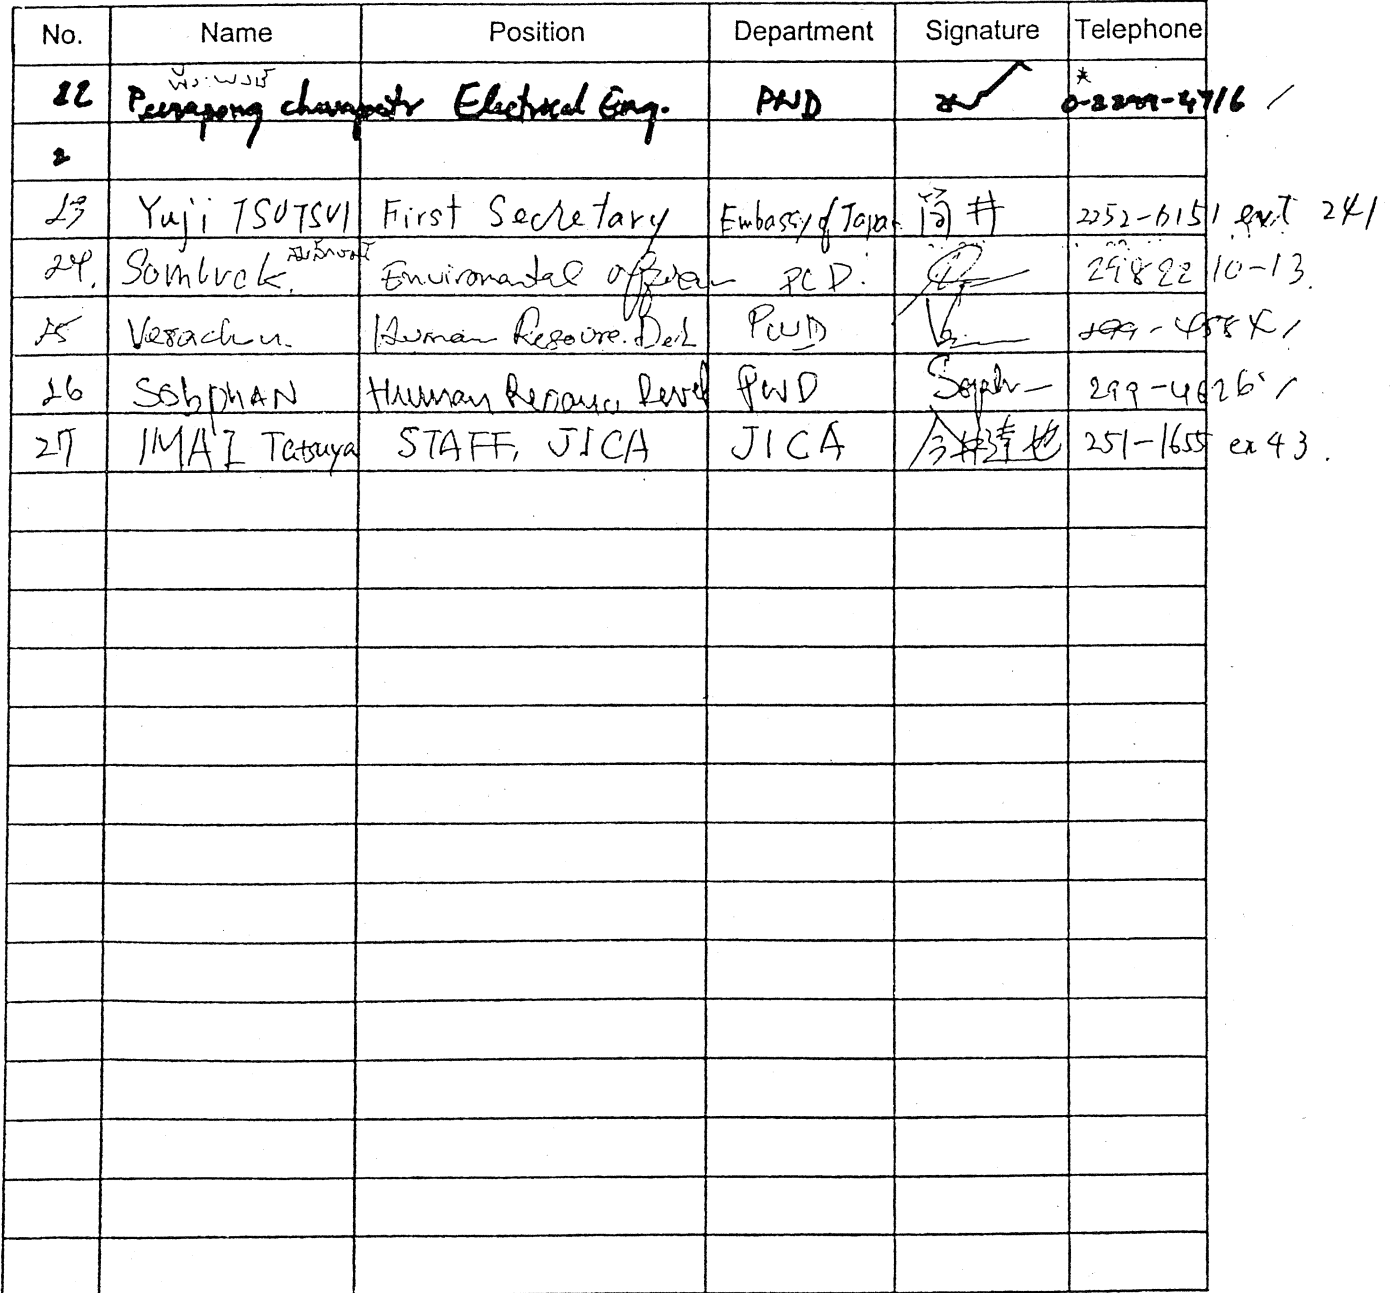 No. Name Position Department Signature Telephone
พีระพงษ์ *
22 Peerapong Electrical Eng. PWD 0-2299-4716 /
2
23 Yuji TSUTSUI First Secretary Embassy of Japan 筒井 2252-6151 ext 241
24. Sombuck. Enviromental officer PCD. 29822 10-13
25 Verachu. Human Resoure. Dev. PWD
26 SobphAN Human Resouce Devel PWD 299-4626 /
27 IMAI Tatsuya STAFF, JICA JICA 今井達也 251-1655 ex 43.